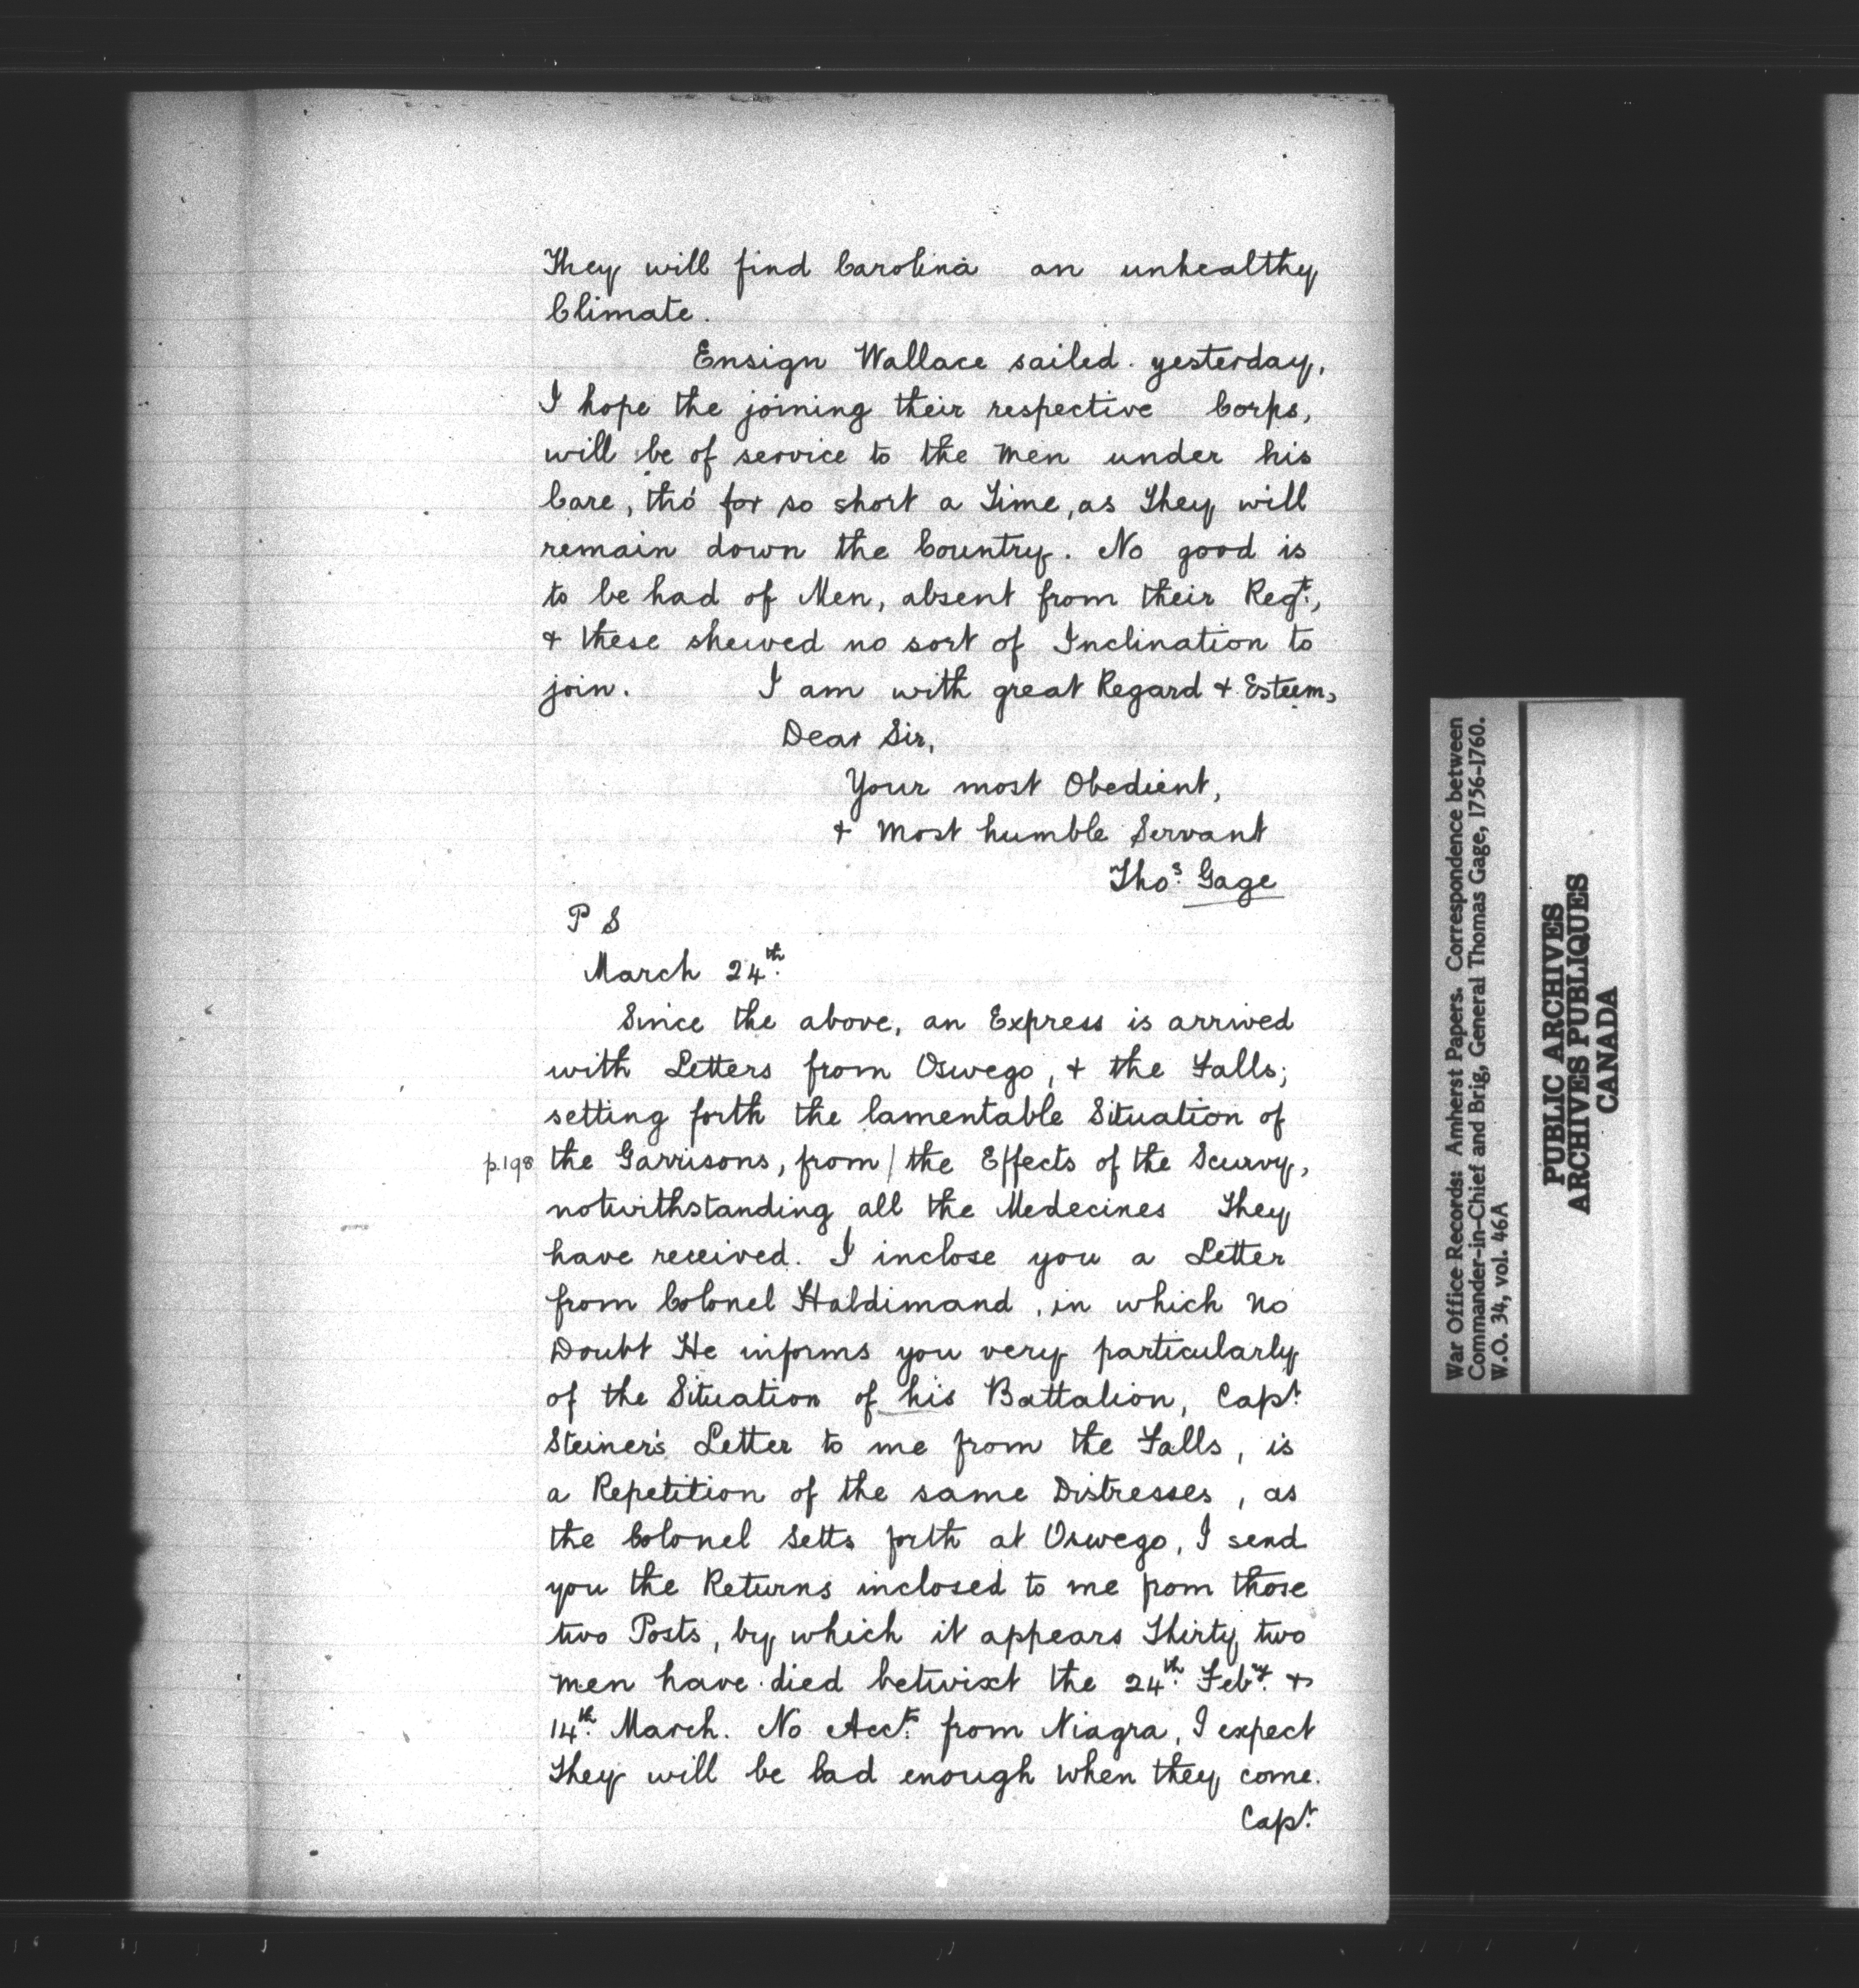 They will find Carolina an unhealthy
Climate.
Ensign Wallace sailed yesterday,
I hope the joining their respective Corps,
will be of service to the Men under his
Care, tho' for so short a Time, as They will
remain down the Country. No good is
to be had of Men, absent from their Regt.,
& these shewed no sort of Inclination to
join. I am with great Regard & Esteem,
Dear Sir,
Your most Obedient,
& Most humble Servant
Thos. Gage
P S
March 24th.
Since the above, an Express is arrived
with Letters from Oswego, & the Falls;
setting forth the lamentable Situation of
p.198 the Garrisons, from / the Effects of the Scurvy,
notwithstanding all the Medecines They
have received. I inclose you a Letter
from Colonel Haldimand, in which no
Doubt He informs you very particularly
of the Situation of his Battalion, Capt.
Steiner's Letter to me from the Falls, is
a Repetition of the same Distresses, as
the Colonel setts forth at Oswego, I send
you the Returns inclosed to me from those
two Posts, by which it appears Thirty two
Men have died betwixt the 24th. Febry. &
14th. March. No Accts. from Niagra, I expect
They will be bad enough when they come.
Capt.
War Office Records: Amherst Papers. Correspondence between
Commander-in-Chief and Brig, General Thomas Gage, 1756-1760.
W.O. 34, vol. 46A
PUBLIC ARCHIVES
ARCHIVES PUBLIQUES
CANADA